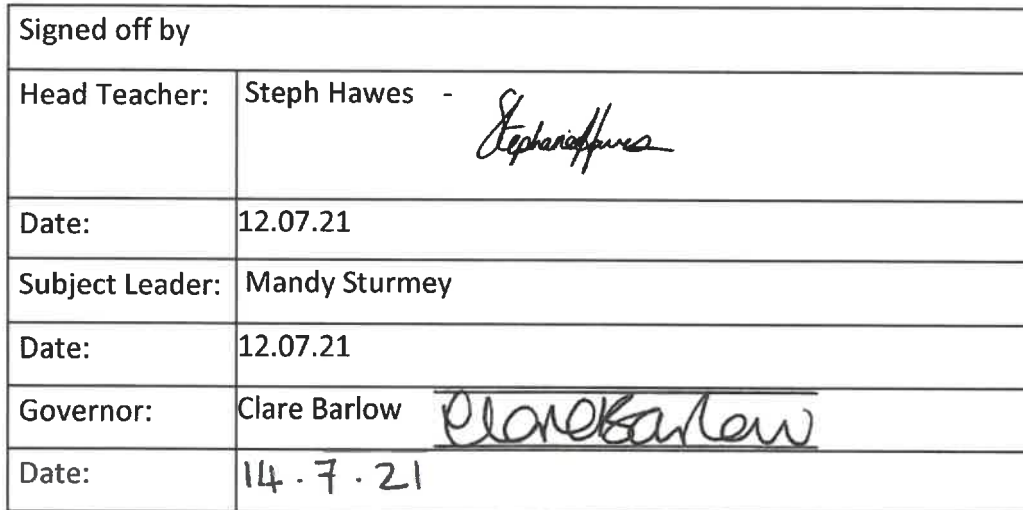 Signed off by
Head Teacher: Steph Hawes -
Stephanie Hawes
Date: 12.07.21
Subject Leader: Mandy Sturmey
Date: 12.07.21
Governor: Clare Barlow Clare Barlow
Date: 14.7.21